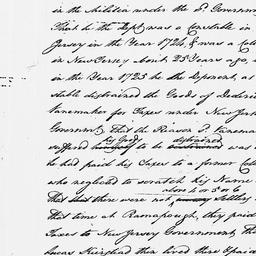 in the Militia under the s.d Government
That he the Dept. was a Constable in
Jersey in the Year 1724, & was a Col
in New Jersey about 25 Years ago,
in the Year 1725 he the Deponent, as
stable distrained the Goods of Dederic
Vanemaker for Taxes under New Jersey
Government That the Reason s.d Vanemak
his Goods distrained
suffered to be was
he had paid his Taxes to a former Col
who neglected to scratch his Name
above 4 or 5 or 6
That there were not, Settlers
This time at Ramapough, they paid
Taxes to New Jersey Government, Tha
lived there & paid